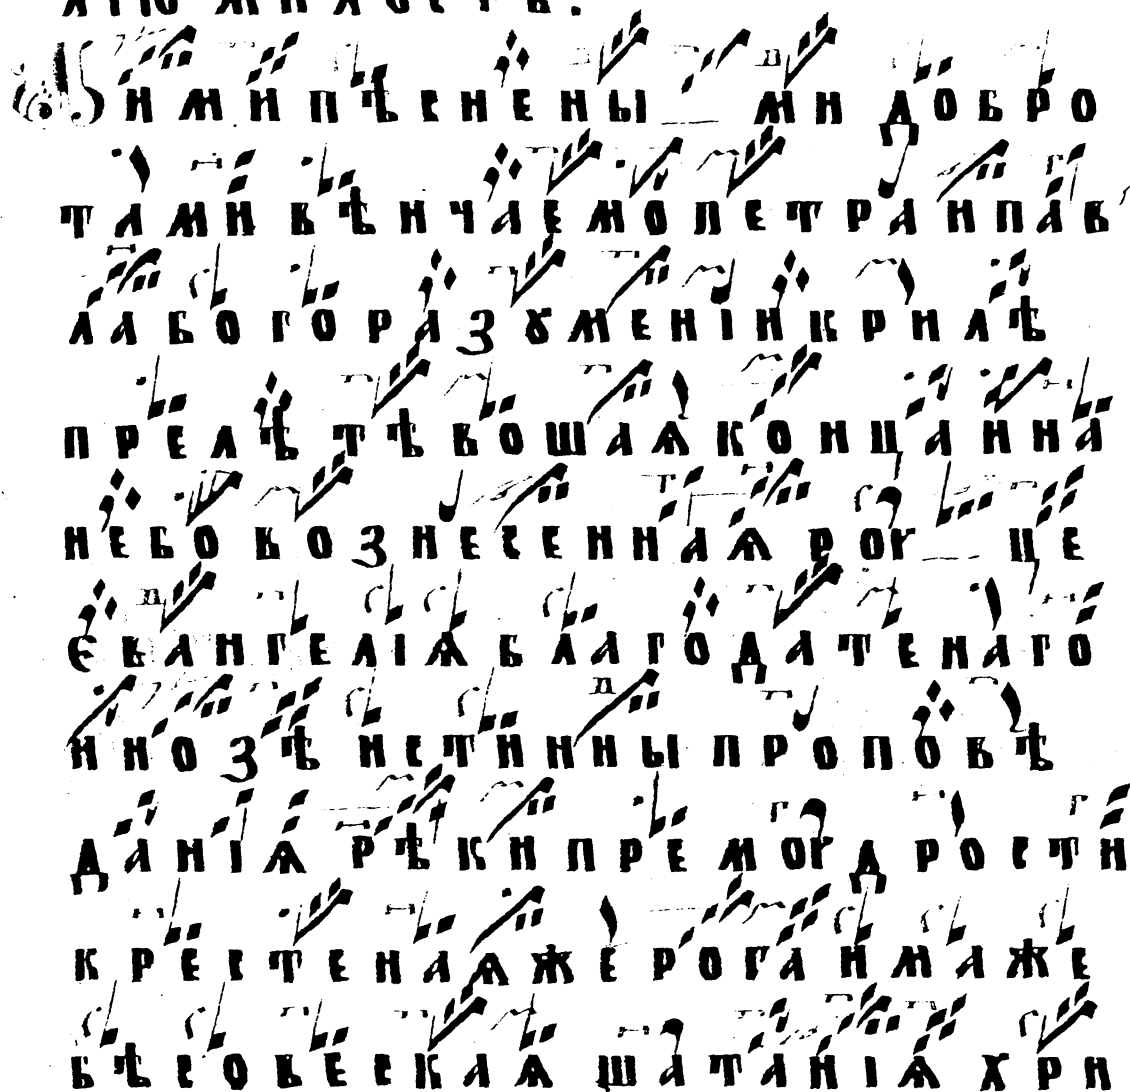 Кими пѣсненны ми добро
тами вѣнчаемо петра и пав
ла богоразуменіи крилѣ
прелѣтѣвошаѧ конца и на
небо вознесеннаѧ роу це
євангеліѧ благодатенаго
и нозѣ истинны проповѣ
даніѧ рѣки премоудрости
крестенаѧ же рога има же
бѣсовескаѧ шатаніѧ хри